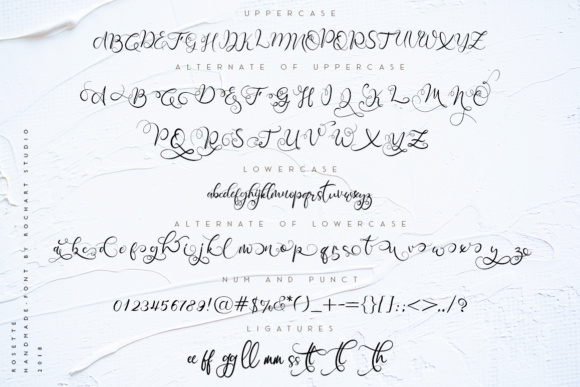 UPPERCASE
ABCDEFGHIJKLMNOPQRSTUVWXYZ
ALTERNATE OF UPPERCASE
A B C D E F G H I J K L M N O
P Q R S T U V W X Y Z
LOWERCASE
abcdefghijklmnopqrstuvwxyz
ALTERNATE OF LOWERCASE
NUM AND PUNCT
0123456789!@#$%&*()_+-={}[]:;<>.,/?
LIGATURES
ee ff gg ll mm ss tt tl th
ROSETTE
HANDMADE-FONT BY ROCHART STUDIO
2018